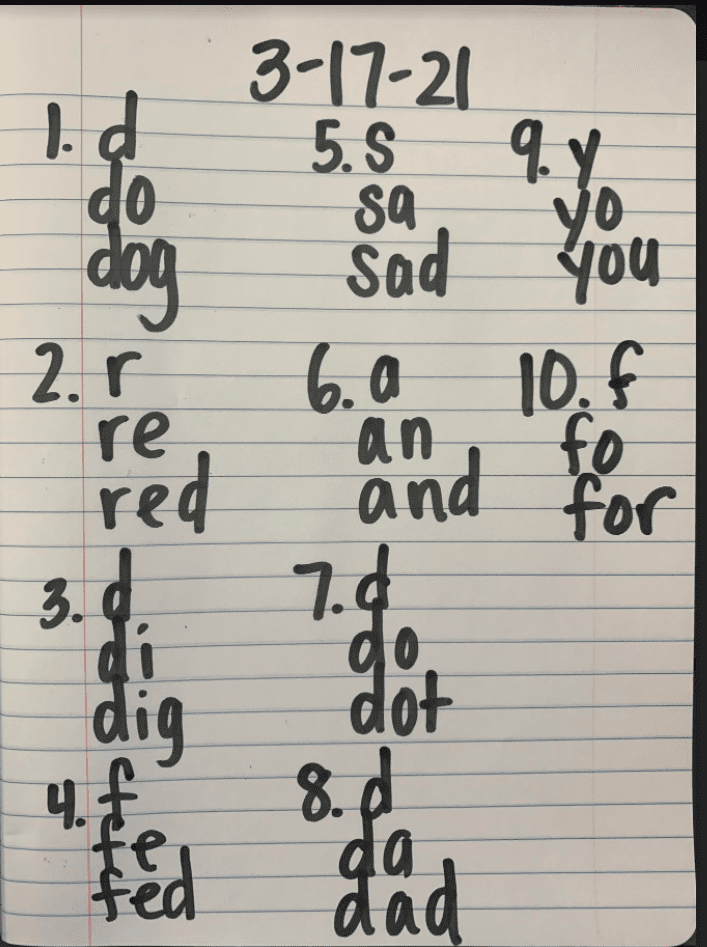 3-17-21
1. d
do
dog
2. r
re
red
3. d
di
dig
4. f
fe
fed
5. s
sa
sad
6. a
an
and
7. d
do
dot
8. d
da
dad
9. y
yo
you
10. f
fo
for